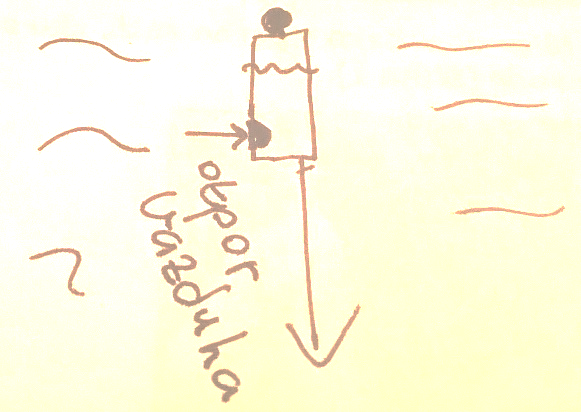 otpor
vazduha